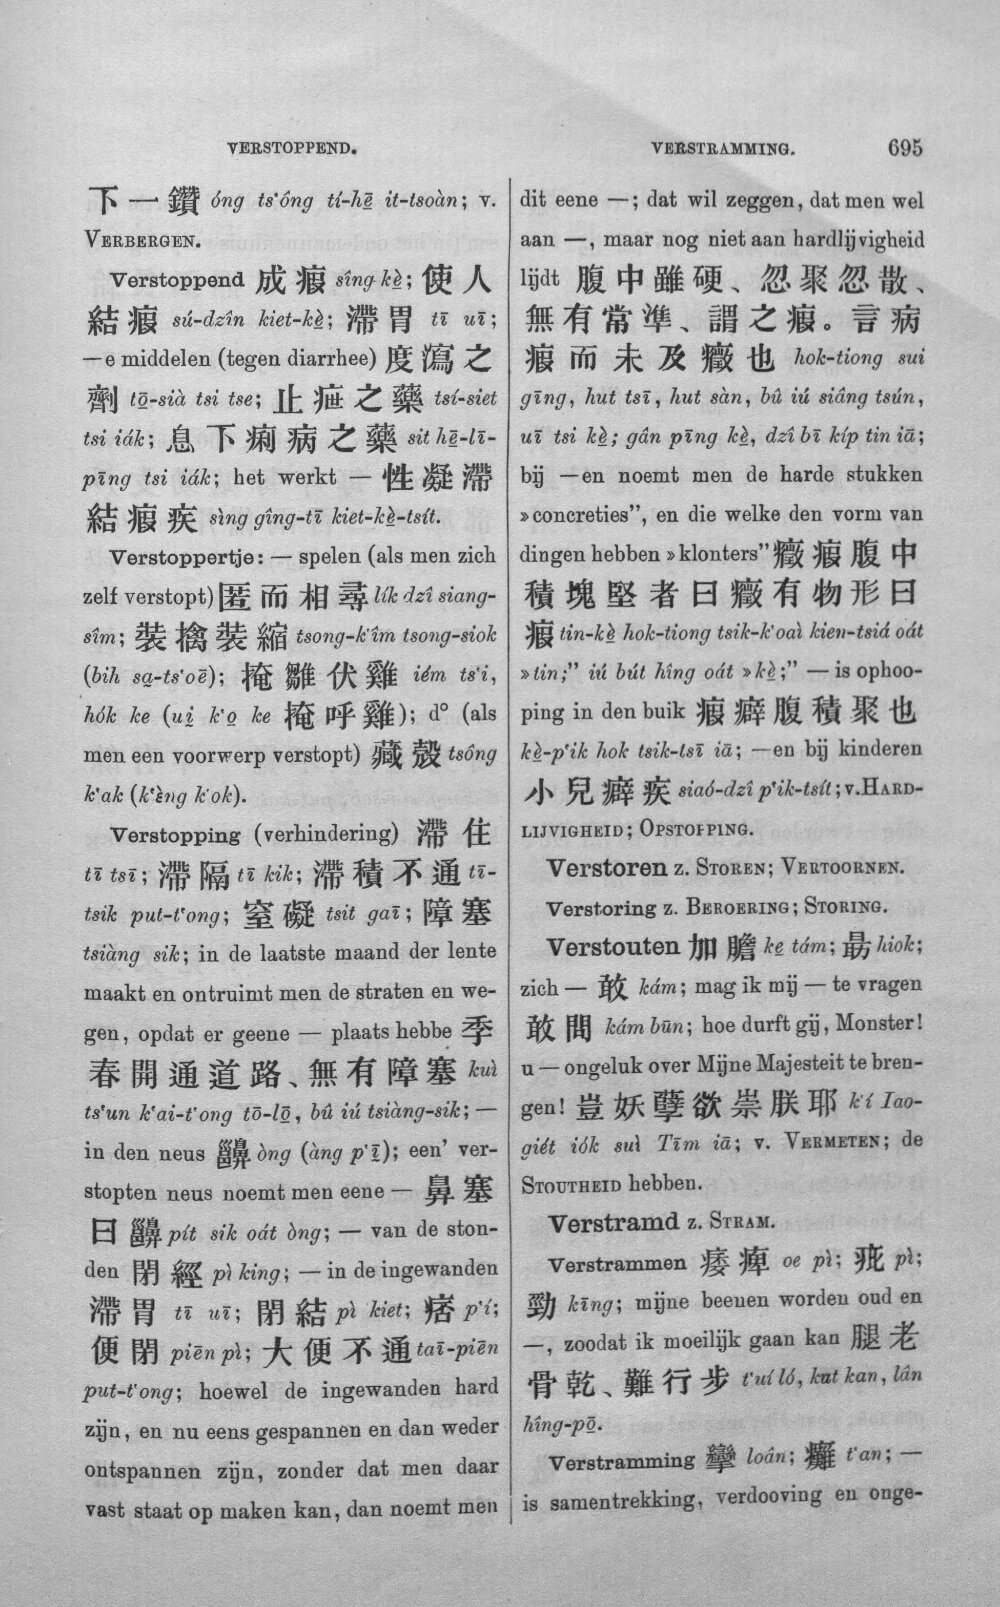 VERSTOPPEND.
VERSTRAMMING. 695
下一鑽 óng ts‘ông tí-hē̱ it-tsoàn; v.
VERBERGEN.
Verstoppend 成瘕 sîng-kè̱; 使人
結瘕 sú-dzîn kiet-kè̱; 滯胃 tī uī;
—e middelen (tegen diarrhee) 度瀉之
劑 tō̱-sià tsi tse; 止疶之藥 tsí-siet
tsi iák; 息下痢病之藥 sit hē̱-lī-
pīng tsi iák; het werkt — 性凝滯
結瘕疾 sìng gîng-tī kiet-kè̱-tsít.
Verstoppertje: — spelen (als men zich
zelf verstopt) 匿而相尋 lík dzî siang-
sîm; 裝擒裝縮 tsong-k‘îm tsong-siok
(bih sa̱-ts‘oē); 掩雛伏雞 iém ts‘i,
hók ke (ui̱ k‘o̱ ke 掩呼雞); d° (als
men een voorwerp verstopt) 藏殼 tsông
k‘ak (k‘èng k‘ok).
Verstopping (verhindering) 滯住
tī tsī; 滯隔 tī kik; 滯積不通 tī-
tsik put-t‘ong; 窒礙 tsit gaī; 障塞
tsiàng sik; in de laatste maand der lente
maakt en ontruimt men de straten en we-
gen, opdat er geene — plaats hebbe 季
春開通道路、無有障塞 kuì
ts‘un k‘ai-t‘ong tō-lō̱, bû iú tsiàng-sik; —
in den neus 齆 òng (àng p‘ī̱); een’ ver-
stopten neus noemt men eene — 鼻塞
曰齆 pít sik oát òng; — van de ston-
den 閉經 pì king; — in de ingewanden
滯胃 tī uī; 閉結 pì kiet; 痞 p‘í;
便閉 piēn pì; 大便不通 taī-piēn
put-t‘ong; hoewel de ingewanden hard
zijn, en nu eens gespannen en dan weder
ontspannen zijn, zonder dat men daar
vast staat op maken kan, dan noemt men
dit eene —; dat wil zeggen, dat men wel
aan —, maar nog niet aan hardlijvigheid
lijdt 腹中雖硬、忽聚忽散、
無有常準、謂之瘕。言病
瘕而未及癥也 hok-tiong sui
gīng, hut tsī, hut sàn, bû iú siâng tsún,
uī tsi kè̱; gân pīng kè̱, dzî bī kíp tin iā;
bij —en noemt men de harde stukken
»concreties”, en die welke den vorm van
dingen hebben »klonters” 癥瘕腹中
積塊堅者曰癥有物形曰
瘕 tin-kè̱ hok-tiong tsik-k‘oaì kien-tsiá oát
»tin;” iú bút hîng oát »kè̱;” — is ophoo-
ping in den buik 瘕癖腹積聚也
kè̱-p‘ik hok tsik-tsī iā; —en bij kinderen
小兒癖疾 siaó-dzî p‘ik-tsít; v. HARD-
LIJVIGHEID; OPSTOPPING.
Verstoren z. STOREN; VERTOORNEN.
Verstoring z. BEROERING; STORING.
Verstouten 加膽 ke̱ tám; 勗 hiok;
zich — 敢 kám; mag ik mij — te vragen
敢問 kám būn; hoe durft gij, Monster!
u — ongeluk over Mijne Majesteit te bren-
gen! 豈妖孽欲祟朕耶 k‘í Iao-
giét iók suì Tīm iā; v. VERMETEN; de
STOUTHEID hebben.
Verstramd z. STRAM.
Verstrammen 痿痺 oe pì; 疪 pì;
勁 kīng; mijne beenen worden oud en
—, zoodat ik moeilijk gaan kan 腿老
骨乾、難行步 t‘uí ló, kut kan, lân
hîng-pō̱.
Verstramming 攣 loân; 癱 t‘an; —
is samentrekking, verdooving en onge-